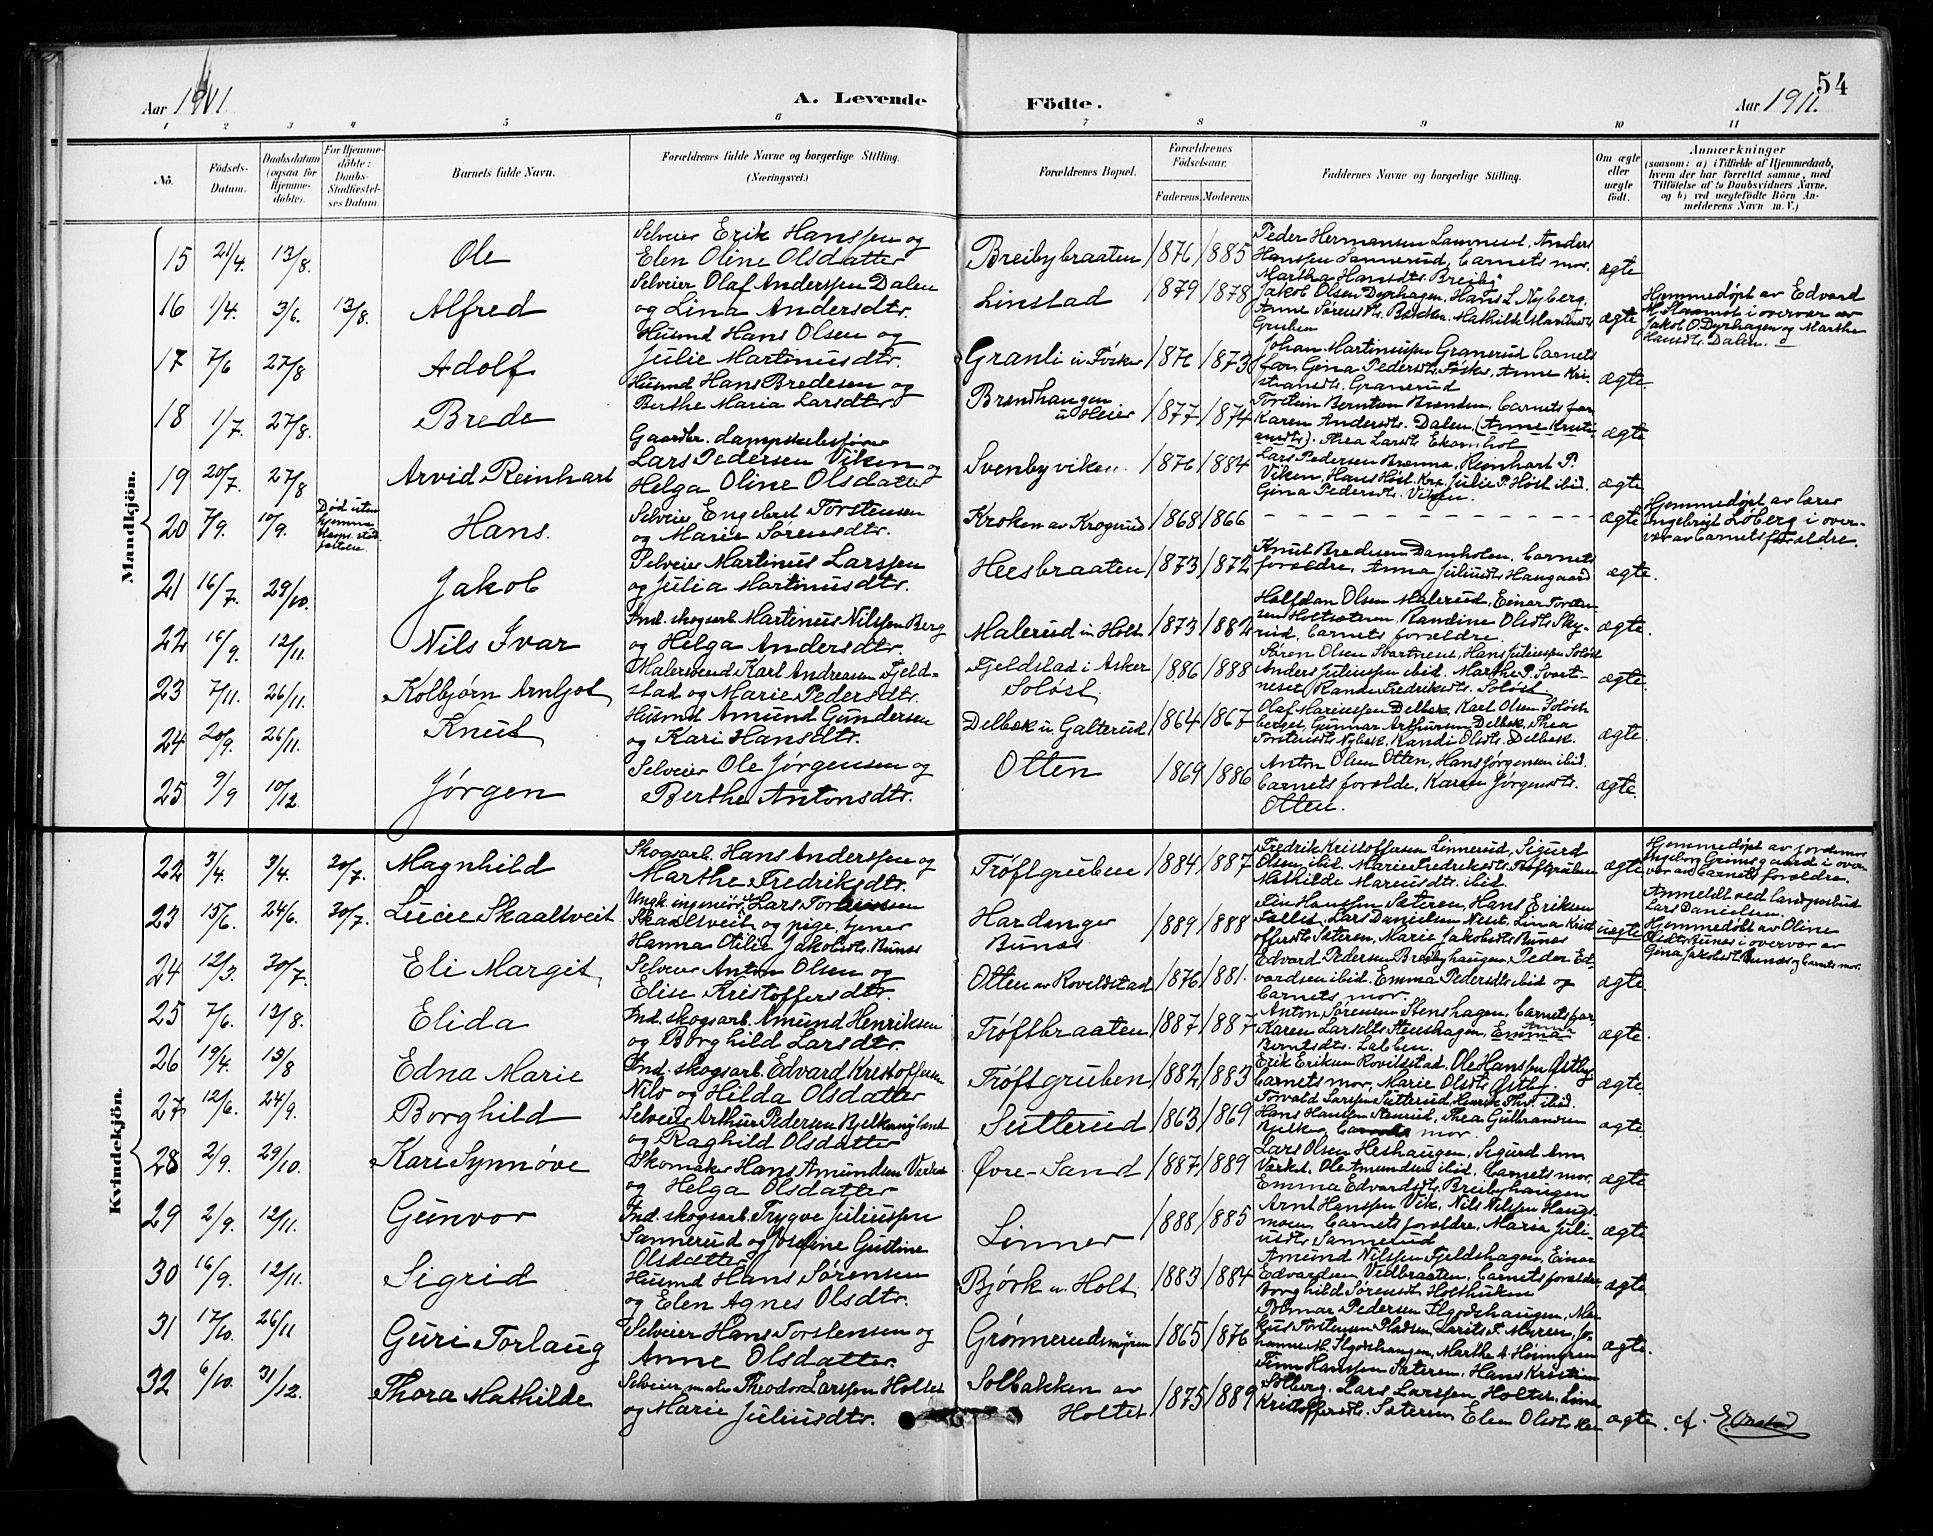 54
Aar 1911
A. Levende
Födte.
Aar 1911.
1 2 3 4 5 6 7 8 9 10 11
No.
Födsels-Datum.
Daabsdatum (ogsaa for Hjemmedöbte).
For Hjemmedöbte: Daabs-Stadfæstelses-Datum.
Barnets fulde Navn.
Forældrenes fulde Navne og borgerlige Stilling.
(Næringsvei.)
Forældrenes Bopæl.
Forældrenes Födselsaar.
Faderens. Moderens.
Faddernes Navne og borgerlige Stilling.
Om ægte eller uægte födt.
Anmærkninger
(saasom: a) i Tilfælde af Hjemmedaab, hvem der har forrettet samme, med Tilföielse af to Daabsvidners Navne, og b) ved uægtefödte Börn Anmelderens Navn m. V.)
Mandkjön.
15 21/4. 13/8. Ole
Selveier Erik Hanssen og
Elen Oline Olsdatter
Breibybraaten 1876 1885
Peder Hermansen, Anders
Hanssen Sannerud, barnets mor,
Martha Hansdtr. Breiby
ægte
16 1/4. 3/6. 13/8. Alfred
Selveier Olaf Anderssen Dalen
og Lina Andersdtr.
Linstad 1879 1878
Jakob Olsen Dyrhagen, Hans L. Nyberg,
Anne Sørensdtr. Bakken, Mathilde
Gruben
ægte
Hjemmedøpt av Edvard
i overvær av
Jakob O. Dyrhagen og Marthe
Hansdtr. Dalen.
17 7/6 27/8 Adolf
Husmd Hans Olsen og
Julie Martinusdtr.
Granli u. Fosker 1876 1873
Johan Martinussen Granerud, barnets
far, Gina Pedersdtr. Fosker, Anne Kri-
stiansdtr. Granerud
ægte.
18 1/7. 27/8. Brede
Husmd Hans Bredesen og
Berthe Maria Larsdtr.
Brændhaugen
u. Heier 1877 1874
Torstein Berntsen Brænden, barnets far
Karen Andersdtr. Dalen, (Anne Kristi-
ansdtr). Thea Larsdtr. Ekornhol
ægte
19 20/7. 27/8 Arvid Reinhart
Gaardbr. dampskibsfører
Lars Pedersen Viken og
Helga Oline Olsdatter
Svenbyviken. 1876 1884
Lars Pedersen Brænna, Reinhart P.
Viken, Hans Høst, Julie P. Høst ibid.
Gina Pedersdtr. Viken.
ægte
20 7/9. 10/9. Død uten
Hans.
Selveier Engebret Torstensen
og Marie Sørensdtr.
Kroken av Krogerud 1868 1866
ægte
Hjemmedøpt av lærer
Ingebrigt Løberg i over-
vær av barnets forældre.
21 16/7. 29/10. Jakob
Selveier Martinus Larssen
og Julia Martinusdtr.
Heesbraaten 1873 1872
Knut Bredesen Damholen, barnets
forældre, Anna Juliusdtr. Haugaard
ægte.
22 16/9. 12/11. Nils Ivar
Ind. skogsarb. Martinus Nilssen Berg
og Helga Andersdtr.
Malerud u. Holt 1873 1882
Halfdan Olsen Malerud, Einar Torsten-
sen Holtsæteren, Randine Olsdtr. Sky-
rud, barnets forældre.
ægte.
23 7/11. 26/11. Kolbjørn Arnljot
Malersvend Karl Andreassen Fjeld-
stad og Marie Pedersdtr.
Fjeldstad i Asker
Soløst. 1886 1888
Søren Olsen Svartneset, Hans Juliussen Soløst
Anders Juliussen ibid. Marthe P. Svart-
neset, Randi Fredriksdtr. Soløst
ægte.
24 20/9. 26/11. Knut
Husmd Amund Gundersen
og Kari Hansdtr.
Delbæk u. Galterud 1864 1867
Olaf Mariussen Delbæk, Karl Olsen Soløst
berget, Gunnar Arthursen Delbæk, Thea
Torstensdtr. Nybæk, Randi Olsdtr. Delbæk.
ægte.
25 9/9 10/12. Jørgen
Selveier Ole Jørgensen og
Berthe Antonsdtr.
Otten 1869 1886
Anton Olsen Otten, Hans Jørgensen ibid.
barnets forældre, Karen Jørgensdtr.
Otten.
ægte.
Kvindekjön.
22 3/4. 3/4. 30/7. Magnhild
Skogsarb. Hans Anderssen og
Marthe Fredriksdtr.
Trøftgruben 1884 1887
Fredrik Kristoffersen Linnerud, Sigurd
Olsen ibid. Marie Fredriksdtr. Trøftgruben
Mathilde Mariusdtr. ibid.
ægte
Hjemmedøpt av jordemor
Ingeborg Grimsgaard i over-
vær av barnets forældre.
23 15/6. 24/6. 30/7. Lucie Skaaltveit
Ungk. ingeniør Lars
Skaaltveit og pige, tjener
Hanna Otilie Jakobsdtr. Bunæs
Hardanger
Bunæs 1889 1888
Hanssen Sæteren, Hans Eriksen
Fallet, Lars Danielsen Neset, Lina Krist-
offersdtr. Sæteren, Marie Jakobsdtr. Bunæs
uægte
Anmeldt ved landpostbud
Lars Danielsen
Hjemmedøbt av Oline
Olsdtr. Bunæs i overvær av
Gina Jakobsdtr. Bunæs og barnets mor.
24 12/3. 30/7. Eli Margit
Selveier Anton Olsen og
Elise Kristoffersdtr.
Otten av Roveldstad 1876 1881.
Edvard Pedersen Breibyhaugen, Peder Ed-
vardsen ibid. Emma Pedersdtr. ibid og
barnets mor.
ægte.
25 7/6. 13/8. Elida
Ind. skogsarb. Amund Henriksen
og Borghild Larsdtr.
Trøftbraaten 1887 1887
Anton Sørensen Stenshagen, barnets far,
Karen Larsdtr. Stenshagen, Emma Anna
Berntsdtr. Labben.
ægte.
26 19/4. 13/8 Edna Marie
Ind. skogsarb. Edvard Kristoffersen
Nilo og Hilda Olsdatter
Trøftgruben 1882 1883
Erik Eriksen Roveldstad, Ole Hanssen Østby,
barnets mor, Marie Olsdtr. Østby.
ægte.
27 12/6. 24/9. Borghild
Selveier Arthur Pedersen Bjelkenyland
og Raghild Olsdatter
Sutterud 1863 1869
Torvald Larssen Sutterud, ibid.
Hans Hansen Stenrud, Thea Gulbrandsen
Bjelke, barnets mor.
ægte.
28 2/9. 29/10. Kari Synnøve
Skomaker Hans Amundsen Værket
og Helga Olsdatter
Øvre-Sand 1887 1889
Lars Olsen Heshaugen, Sigurd Am.
Værket, Ole Amundsen ibid, barnets mor,
Emma Edvardsdtr. Breibyhaugen
ægte.
29 2/9. 12/11. Gunvor
Ind. skogsarb. Trygve Juliussen
Sannerud og Josefine Gustine
Olsdatter
Linner 1888 1885
Arnt Hanssen Vik, Nils Nilssen Haugs-
moen, barnets forældre, Maria Juli-
usdtr. Sannerud
ægte
30 16/9. 12/11. Sigrid
Husmd Hans Sørensen
og Elen Agnes Olsdtr.
Bjørk u. Holt. 1883 1884
Amund Nilssen Fjeldshagen, Einar
Edvardsen Vedbraaten, barnets forældre
Borghild Sørensdtr. Holthuken
ægte
31 17/10. 26/11 Guri Torlaug
Selveier Hans Torstensen og
Anne Olsdatter.
Grønnerudsmyren 1865 1876
Hilmar Pedersen Skodshaugen, Mar-
kus Torstensen Pladsen, Myren, Jo-
hanne M. Skodshaugen, Marthe A.
ægte.
32 6/10. 31/12. Thora Mathilde
Selveier, maler Theodor Larssen Holtet
og Marie Juliusdtr.
Solbakken av
Holtet 1875 1889
Finn Hanssen Sæteren, Hans Kristian
Solberg, Lars Larssen Holtet, Lina
Kristoffersdtr. Sæteren, Elen Olsdtr.
ægte.